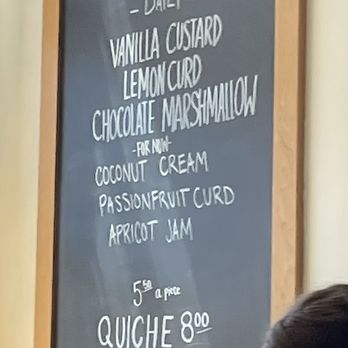 - DAILY
VANILLA CUSTARD
LEMON CURD
CHOCOLATE MARSHMALLOW
-FOR NOW-
COCONUT CREAM
PASSIONFRUIT CURD
APRICOT JAM
5.50 a piece
QUICHE 8.00